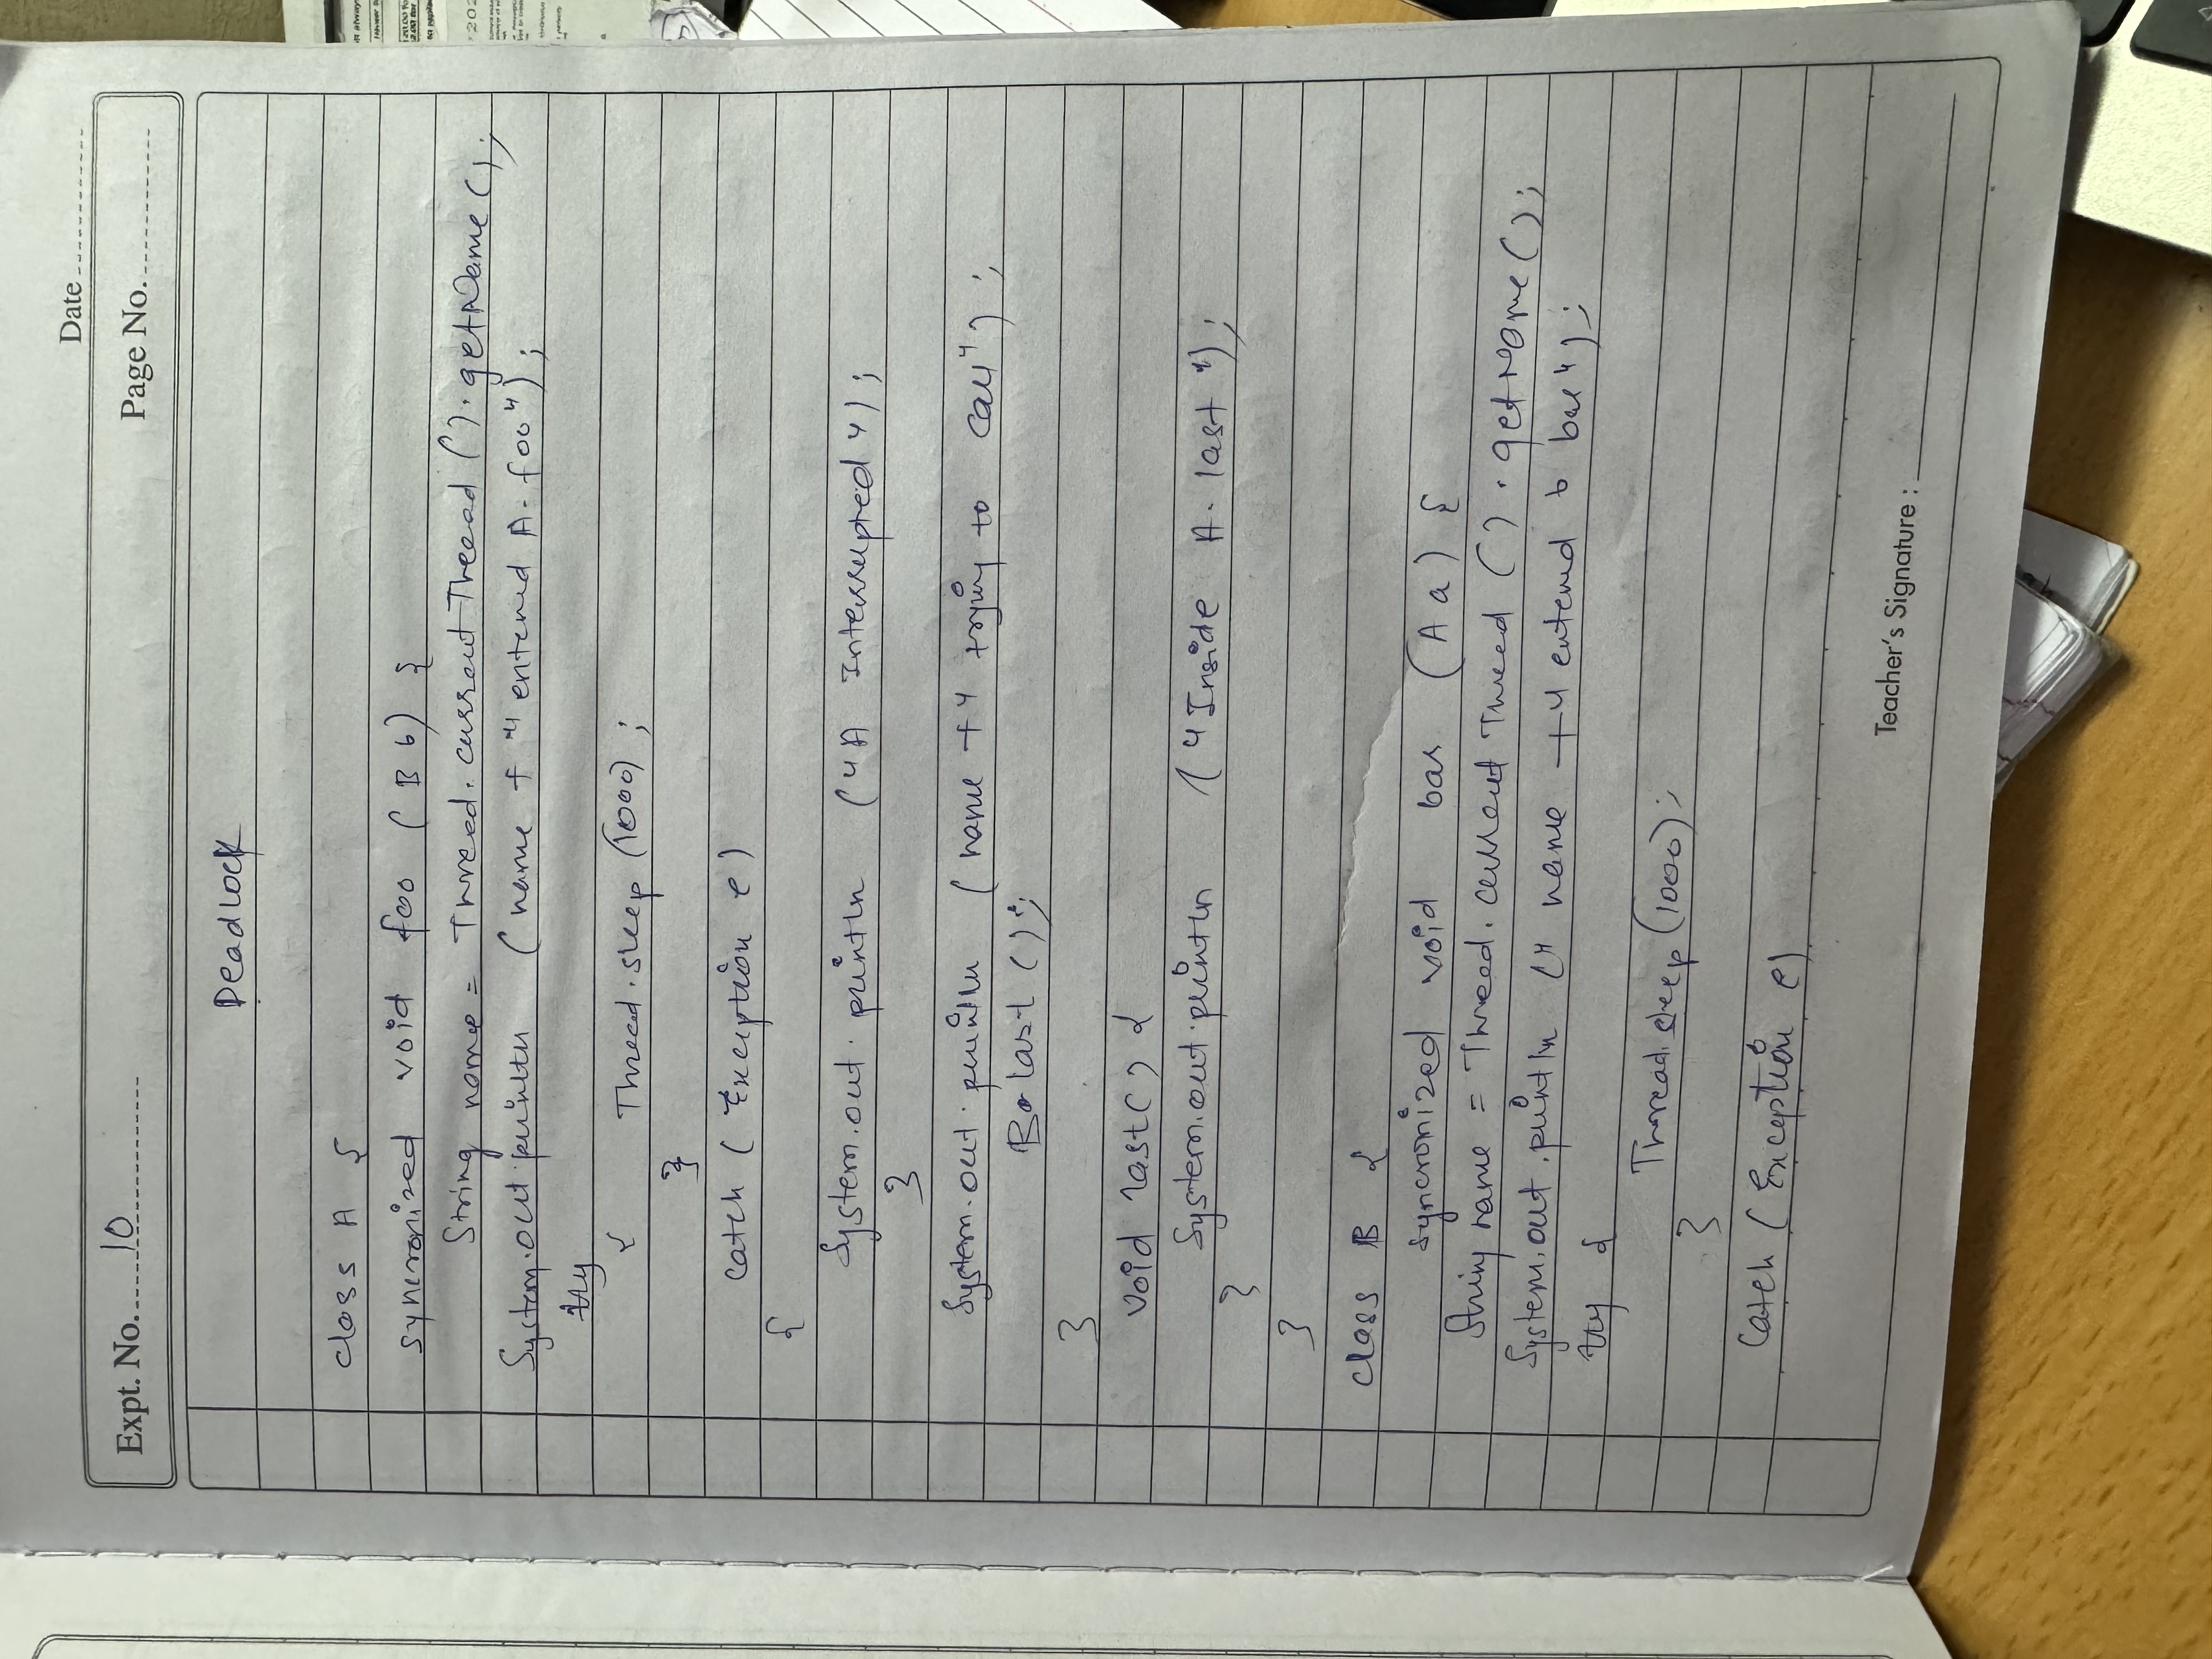 Date
Expt. No. 10
Page No.
Deadlock
class A {
syncronized void foo (B b) {
String name = Thread.currentThread().getName();
System.out.println (name + " entered A.foo");
try
{ Thread.sleep (1000);
}
catch (Exception e)
{
System.out.println ("A Interrupted");
}
System.out.println (name + " trying to call");
B.last ();
}
void last() {
System.out.println ("Inside A.last");
}
}
class B {
syncronized void bar (A a) {
String name = Thread.currentThread().getName();
System.out.println (" name + " entered b bar");
try {
Thread.sleep (1000);
}
catch (Exception e)
Teacher's Signature :